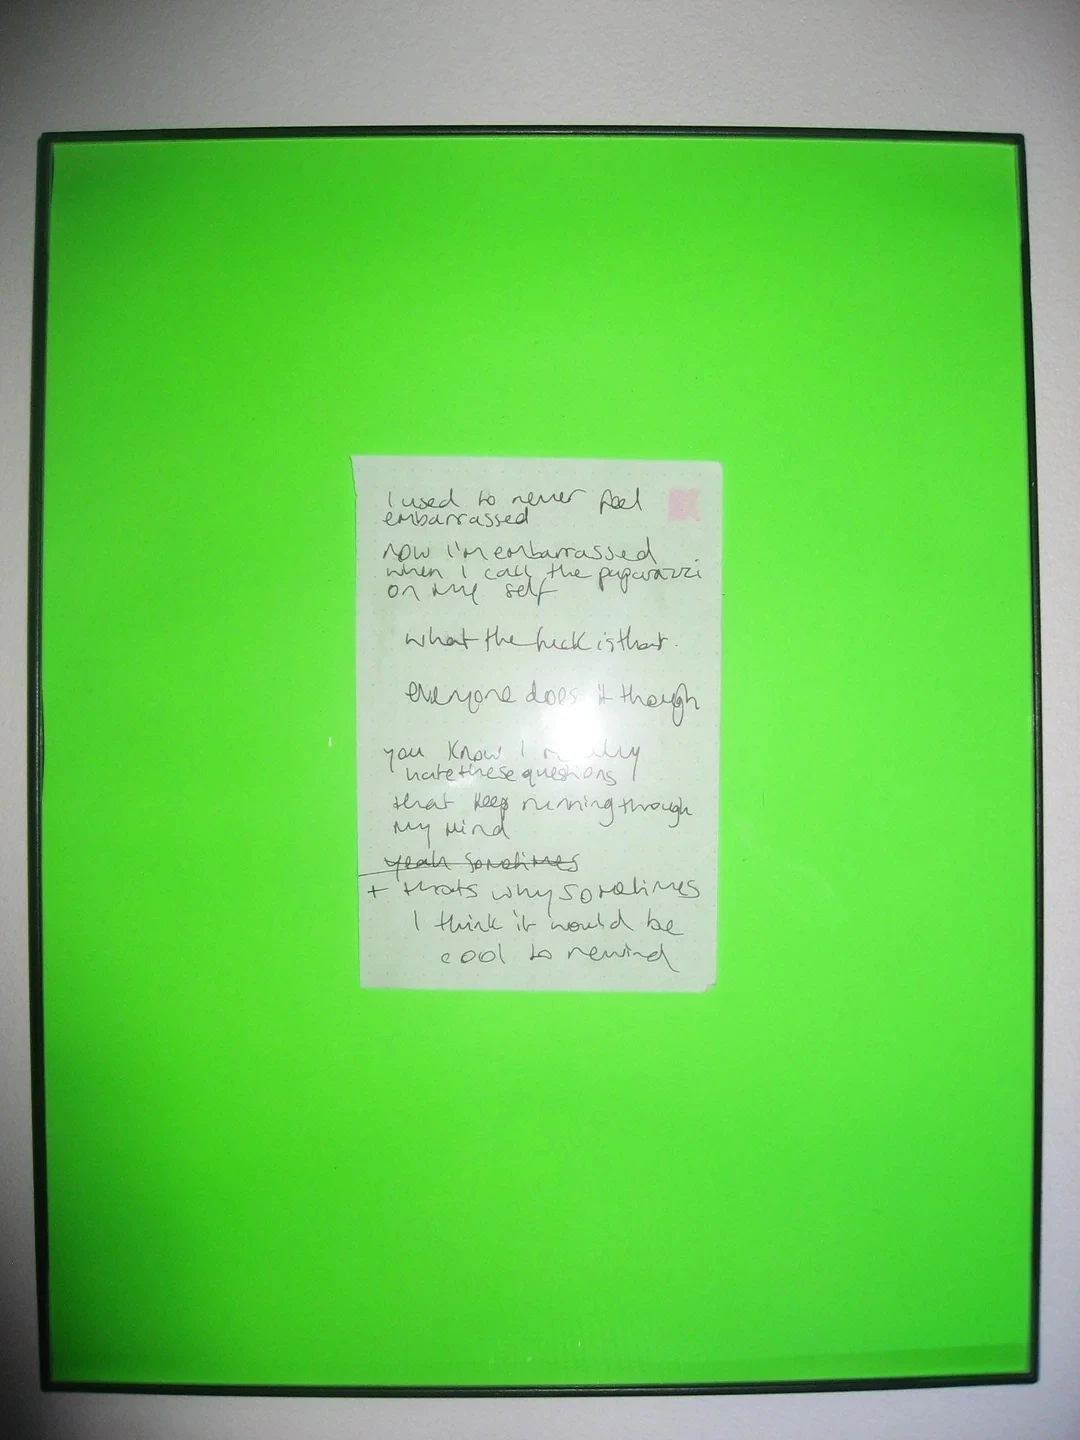 I used to never feel
embarrassed
now I'm embarrassed
when I call the paparazzi
on my self
what the fuck is that.
everyone does it though
you know I
hate these questions
that keep running through
my mind
yeah sometimes
+ thats why sometimes
I think it would be
cool to rewind